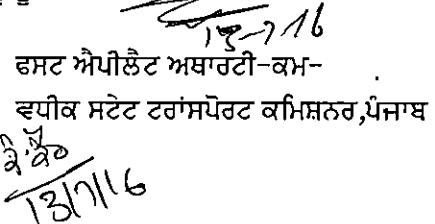 13-7-16
ਫਸਟ ਐਪੀਲੈਟ ਅਥਾਰਟੀ-ਕਮ-
ਵਧੀਕ ਸਟੇਟ ਟਰਾਂਸਪੋਰਟ ਕਮਿਸ਼ਨਰ,ਪੰਜਾਬ
13/7/16